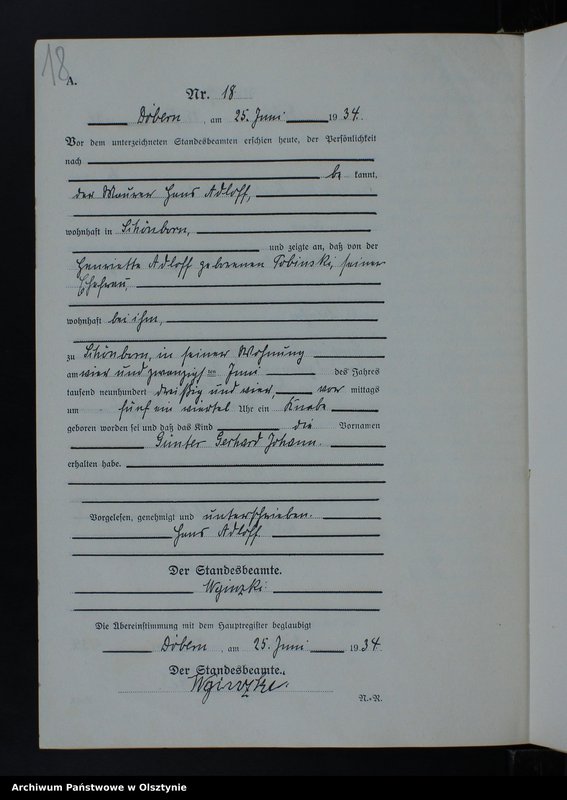 18
A.
Nr. 18
Döbern, am 25. Juni 1934.
Vor dem unterzeichneten Standesbeamten erschien heute, der Persönlichkeit
nach
be kannt,
der Maurer Hans Adloff,
wohnhaft in Schönborn,
und zeigte an, daß von der
Henriette Adloff geborenen Tobinski, seiner
Ehefrau,
wohnhaft bei ihm,
zu Schönborn, in seiner Wohnung
am vier und zwanzigsten Juni des Jahres
tausend neunhundert dreißig und vier, vor mittags
um fünf ein viertel Uhr ein Knabe
geboren worden sei und daß das Kind die Vornamen
Günter Gerhard Johann.
erhalten habe.
Vorgelesen, genehmigt und unterschrieben.
Hans Adloff
Der Standesbeamte.
Die Übereinstimmung mit dem Hauptregister beglaubigt
Döbern, am 25. Juni 1934.
Der Standesbeamte.
N.-R.
Archiwum Państwowe w Olsztynie